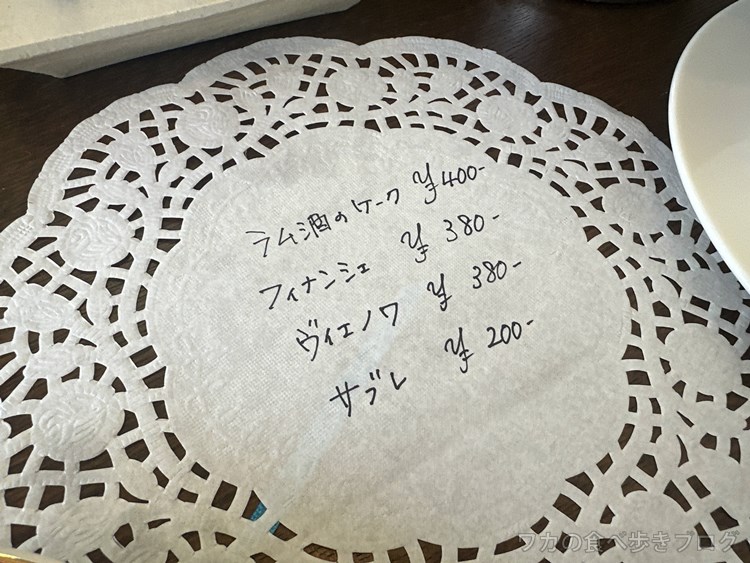 ラム酒のケーク ¥400-
フィナンシェ ¥380-
ヴィエノワ ¥380-
サブレ ¥200-
フカの食べ歩きブログ